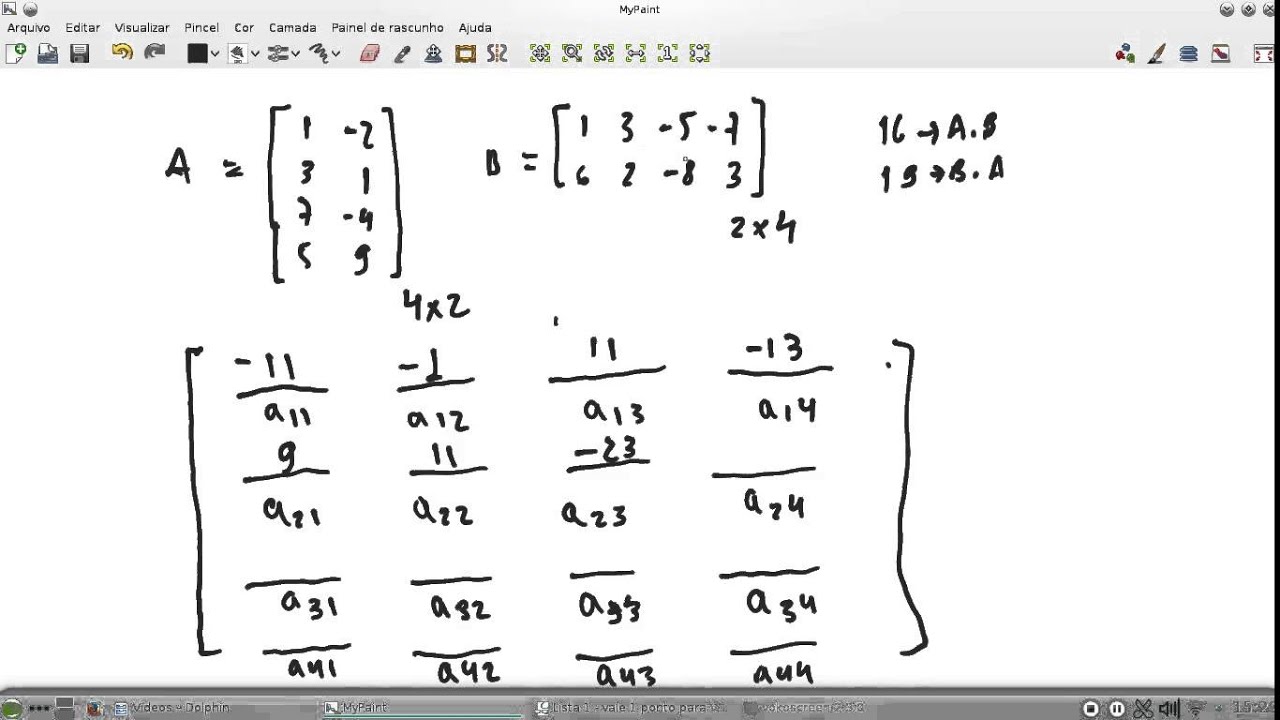 MyPaint
Arquivo Editar Visualizar Pincel Cor Camada Painel de rascunho Ajuda
A = [ 1 -2
3 1
7 -4
5 9 ]
4x2
B = [ 1 3 -5 -7
6 2 -8 3 ]
2x4
16 → A.B
19 → B.A
-11 -1 11 -13
a11 a12 a13 a14
9 11 -23
a21 a22 a23 a24
a31 a32 a33 a34
a41 a42 a43 a44
Vídeos - Dolphin MyPaint Lista 1 - vale 1 ponto para